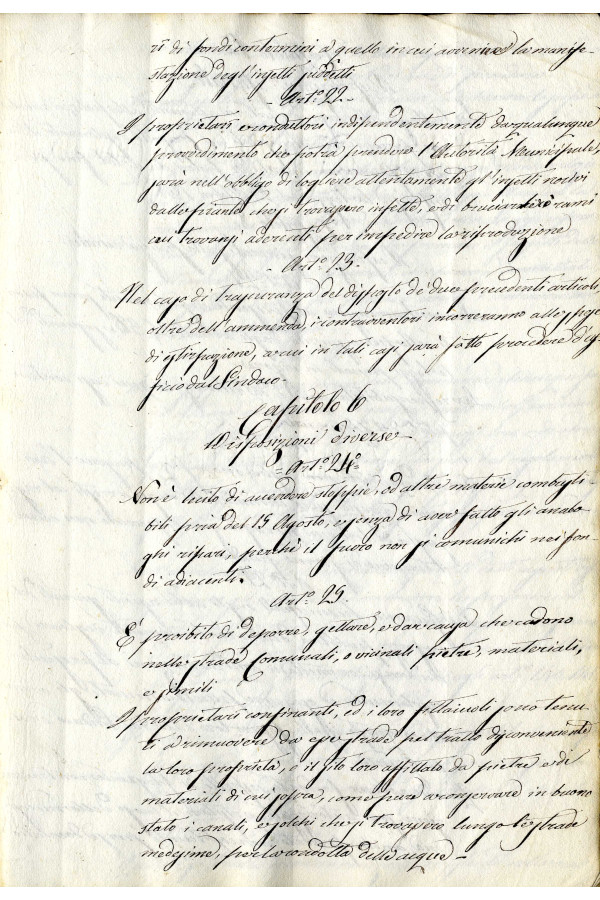 ri di fondi contermini a quello in cui avvenne la manife-
stazione degl'insetti suddetti
- Art.º 22. -
I proprietari e conduttori indipendentemente da qualunque
provvedimento che potrà prendere l'Autorità Municipale
sarà nell'obbligo di togliere attentamente gl'insetti nocivi
dalle piante che si trovassero infette, e di bruciare i rami
cui trovansi aderenti per impedire la riproduzione
- Art.º 23.
Nel caso di trascuranza del disposto de' due precedenti articoli,
oltre dell'ammenda, i contravventori incorreranno alle spese
di estirpazione, a cui in tali casi sarà fatto procedere d'uf-
ficio dal Sindaco -
Capitolo 6
Disposizioni diverse
= Art.º 24º =
Non è lecito di accendere stoppie, ed altre materie combusti-
bili pria del 15 Agosto, e senza di aver fatto gli analo-
ghi ripari, perchè il fuoco non si comunichi nei fon-
di adiacenti.
Art.º 25.
È proibito di deporre, gettare, e dar causa che cadono
nelle strade Comunali, o vicinali pietre, materiali,
e simili
I proprietari confinanti, ed i loro fittaiuoli sono tenu-
ti a rimuovere da esse strade pel tratto
la loro proprietà, o il sito loro affittato da pietre e di
materiali di cui sopra, come pure a conservare in buono
stato i canali, e solchi che si trovassero lungo le strade
medesime, per la condotta delle acque -